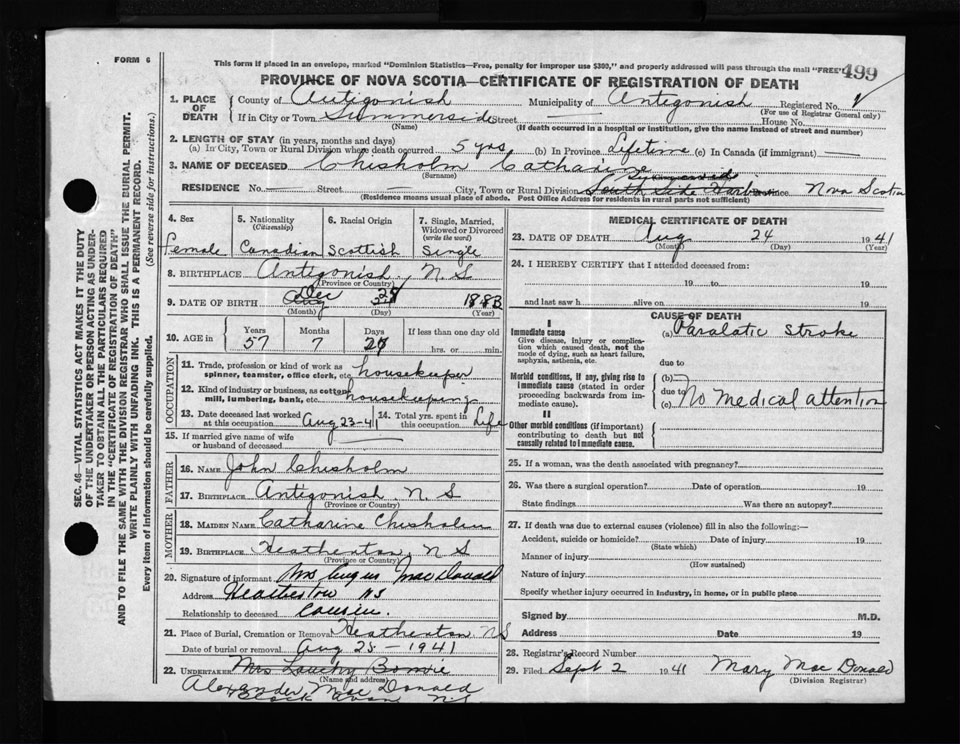 FORM 6
This form if placed in an envelope, marked "Dominion Statistics—Free, penalty for improper use $300," and properly addressed will pass through the mail "FREE"
499
PROVINCE OF NOVA SCOTIA—CERTIFICATE OF REGISTRATION OF DEATH
1. PLACE OF DEATH County of Antigonish Municipality of Antigonish Registered No.
(For use of Registrar General only)
If in City or Town Summerside Street — House No.
(Name) (If death occurred in a hospital or institution, give the name instead of street and number)
2. LENGTH OF STAY (in years, months and days)
(a) In City, Town or Rural Division where death occurred 5 yrs (b) In Province Lifetime (c) In Canada (if immigrant) —
3. NAME OF DECEASED Chisholm Catharine
(Surname)
RESIDENCE No. — Street — City, Town or Rural Division South Side Harbor Province Nova Scotia
(Residence means usual place of abode. Post Office Address for residents in rural parts not sufficient)
4. Sex
female
5. Nationality (Citizenship)
Canadian
6. Racial Origin
Scottish
7. Single, Married, Widowed or Divorced (write the word)
Single
8. BIRTHPLACE Antigonish, N.S
(Province or Country)
9. DATE OF BIRTH Dec 28 1883
(Month) (Day) (Year)
10. AGE in Years Months Days If less than one day old
57 7 hrs. or min.
OCCUPATION
11. Trade, profession or kind of work as spinner, teamster, office clerk, etc. housekeeper
12. Kind of industry or business, as cotton mill, lumbering, bank, etc. housekeeping
13. Date deceased last worked at this occupation Aug 23-41
14. Total yrs. spent in this occupation Life
15. If married give name of wife or husband of deceased —
FATHER
16. NAME John Chisholm
17. BIRTHPLACE Antigonish. N S
(Province or Country)
MOTHER
18. MAIDEN NAME Catharine Chisholm
19. BIRTHPLACE Heatherton, N S
(Province or Country)
20. Signature of informant Mrs Angus MacDonald
Address Heatherton NS
Relationship to deceased cousin.
21. Place of Burial, Cremation or Removal Heatherton NS
Date of burial or removal Aug 25-1941
22. UNDERTAKER Mrs
(Name and address)
Alexander MacDonald
MEDICAL CERTIFICATE OF DEATH
23. DATE OF DEATH Aug 24 1941
(Month) (Day) (Year)
24. I HEREBY CERTIFY that I attended deceased from:
19 to 19
and last saw h alive on 19
CAUSE OF DEATH
I
Immediate cause
Give disease, injury or complication which caused death, not the mode of dying, such as heart failure, asphyxia, asthenia, etc.
(a) Paralatic Stroke
due to
Morbid conditions, if any, giving rise to immediate cause (stated in order proceeding backwards from immediate cause).
(b)
due to
(c) No Medical attention
II
Other morbid conditions (if important) contributing to death but not causally related to immediate cause.
25. If a woman, was the death associated with pregnancy?
26. Was there a surgical operation? Date of operation 19
State findings Was there an autopsy?
27. If death was due to external causes (violence) fill in also the following:—
Accident, suicide or homicide? Date of injury 19
(State which)
Manner of injury
(How sustained)
Nature of injury
Specify whether injury occurred in industry, in home, or in public place
Signed by M.D.
Address Date 19
28. Registrar's Record Number
29. Filed Sept 2 1941 Mary MacDonald
(Division Registrar)
SEC. 46—VITAL STATISTICS ACT MAKES IT THE DUTY
OF THE UNDERTAKER OR PERSON ACTING AS UNDERTAKER
TO OBTAIN ALL THE PARTICULARS REQUIRED
IN THE "CERTIFICATE OF REGISTRATION OF DEATH"
AND TO FILE THE SAME WITH THE DIVISION REGISTRAR WHO SHALL ISSUE THE BURIAL PERMIT.
WRITE PLAINLY WITH UNFADING INK. THIS IS A PERMANENT RECORD.
Every item of information should be carefully supplied. (See reverse side for instructions.)